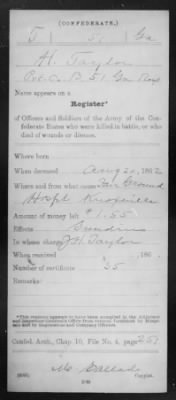 (CONFEDERATE.)
T 51 Ga
H. Taylor
Pvt. Co. B 51 Ga Regt
Name appears on a
Register*
of Officers and Soldiers of the Army of the Confederate
States who were killed in battle, or who
died of wounds or disease.
Where born
When deceased Aug 20, 1862
Where and from what cause Fair Ground
Hospl Knoxville
Amount of money left $1.55
Effects Sundries
In whose charge J H Taylor
When received , 186 .
Number of certificate 55
Remarks:
*This register appears to have been compiled in the Adjutant
and Inspector General's Office from reports furnished by Hospitals
and by Regiments and Company Officers.
Confed. Arch., Chap. 10, File No. 4, page 251
Copyist.